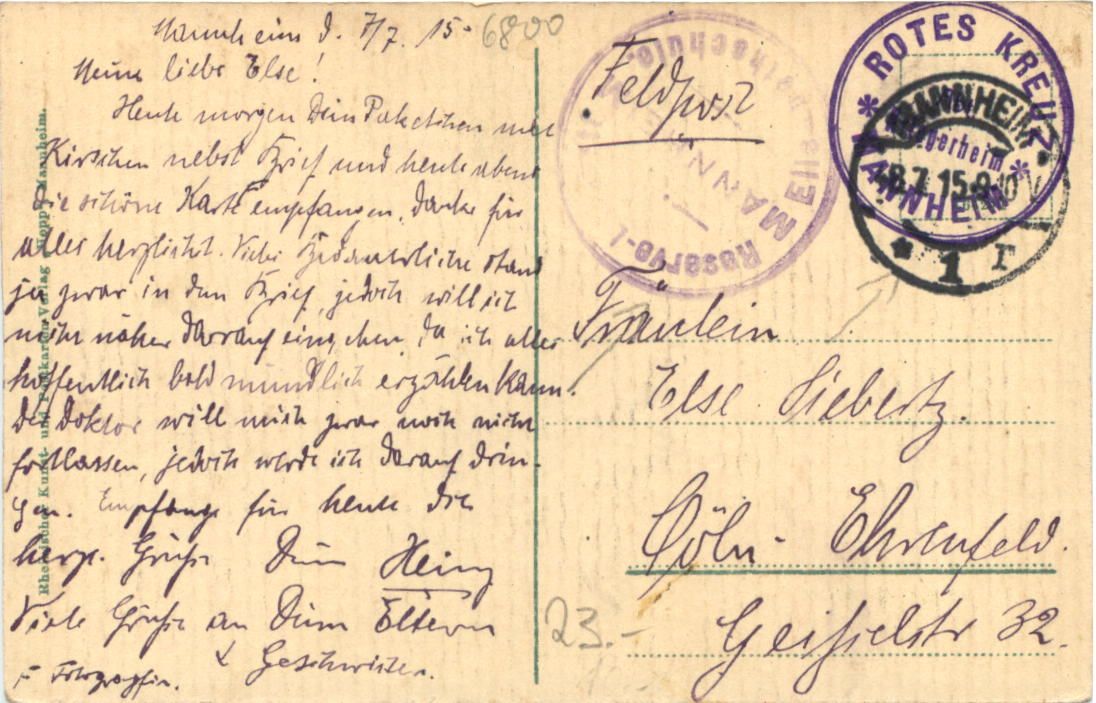 Mannheim d. 7/7. 15.
6800
Meine liebe Else!
Heute morgen Dein Paketchen mit
Kirschen nebst Brief und heute abend
die schöne Karte empfangen, danke für
alles herzlichst. Viele
ja zwar in dem Brief, jedoch will ich
nicht näher darauf eingehen, da ich alles
hoffentlich bald mündlich erzählen kann.
Der Doktor will mich zwar noch nicht
fortlassen, jedoch werde ich darauf drin-
gen. Empfange für heute die
herzl. Grüße Dein Heinz
Viele Grüße an Deine Eltern
& Geschwister.
Rheinische Kunst- und Postkarten-Verlag Mannheim.
Feldpost
Reserve-L
MANNHEIM
ROTES KREUZ
MANNHEIM
MANNHEIM
8.7.15.9-10V
* 1 r
Fräulein
Else Siebertz.
Cöln-Ehrenfeld.
Geisselstr 32.
23.-